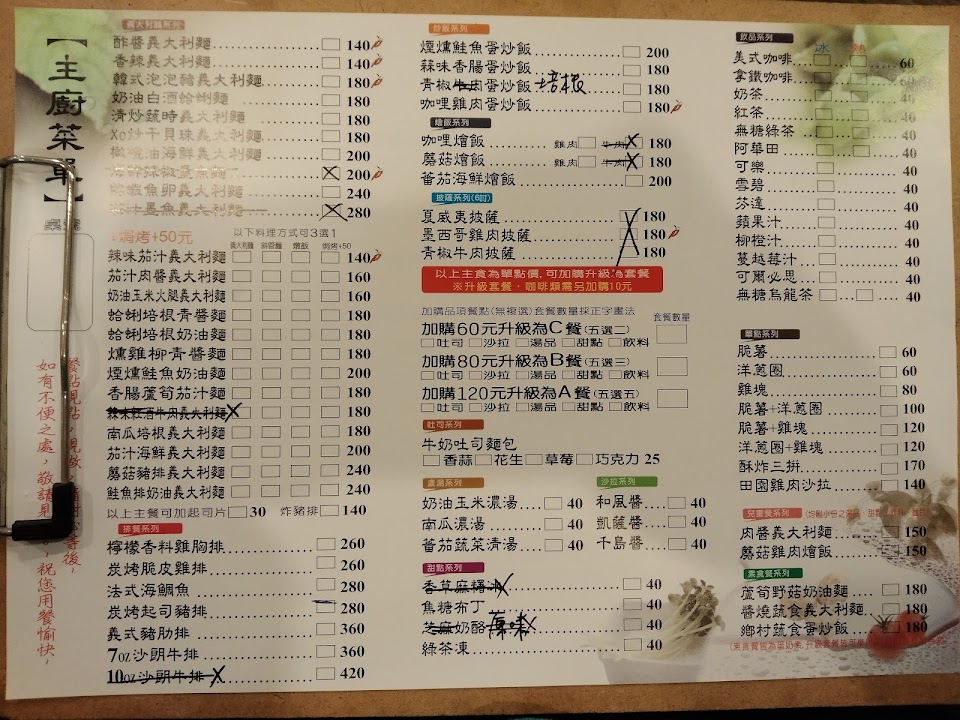 【主廚菜單】
義大利麵系列
酢醬義大利麵 140
香辣義大利麵 140
韓式泡泡豬義大利麵 180
奶油白酒蛤蜊麵 180
清炒蔬時義大利麵 180
XO炒干貝珠義大利麵 180
橄欖油海鮮義大利麵 200
200
魚卵義大利麵 240
墨魚義大利麵 280
焗烤+50元 以下料理方式可3選1
義大利麵 筆管麵 燉飯 焗烤+50
辣味茄汁義大利麵 140
茄汁肉醬義大利麵 160
奶油玉米火腿義大利麵 160
蛤蜊培根青醬麵 180
蛤蜊培根奶油麵 180
燻雞柳青醬麵 180
煙燻鮭魚奶油麵 200
香腸蘆筍茄汁麵 180
辣味紅酒牛肉義大利麵 X 180
南瓜培根義大利麵 180
茄汁海鮮義大利麵 200
蘑菇豬排義大利麵 240
鮭魚排奶油義大利麵 240
以上主餐可加起司片 30 炸豬排 140
排餐系列
檸檬香料雞胸排 260
炭烤脆皮雞排 260
法式海鯛魚 280
炭烤起司豬排 280
義式豬肋排 360
7oz沙朗牛排 360
10oz沙朗牛排 X 420
如有不便之處，敬請見諒，祝您用餐愉快，
炒飯系列
煙燻鮭魚蛋炒飯 200
蒜味香腸蛋炒飯 180
青椒牛肉蛋炒飯 培根 180
咖哩雞肉蛋炒飯 180
燴飯系列
咖哩燴飯 雞肉 牛肉 X 180
蘑菇燴飯 雞肉 牛肉 X 180
蕃茄海鮮燴飯 200
披薩系列(6吋)
夏威夷披薩 180
墨西哥雞肉披薩 180
青椒牛肉披薩 180
以上主食為單點價, 可加購升級為套餐
※升級套餐，咖啡類需另加購10元
加購品項餐點(無複選)套餐數量採正字畫法
加購60元升級為C餐(五選二) 套餐數量
吐司 沙拉 湯品 甜點 飲料
加購80元升級為B餐(五選三)
吐司 沙拉 湯品 甜點 飲料
加購120元升級為A餐(五選五)
吐司 沙拉 湯品 甜點 飲料
吐司系列
牛奶吐司麵包
香蒜 花生 草莓 巧克力 25
濃湯系列
奶油玉米濃湯 40
南瓜濃湯 40
蕃茄蔬菜清湯 40
沙拉系列
和風醬 40
凱薩醬 40
千島醬 40
甜點系列
香草麻糬冰 X 40
焦糖布丁 40
芝麻奶酪 原味 X 40
綠茶凍 40
飲品系列
冰 熱
美式咖啡 60
拿鐵咖啡 60
奶茶 40
紅茶 40
無糖綠茶 40
阿華田 40
可樂 40
雪碧 40
芬達 40
蘋果汁 40
柳橙汁 40
蔓越莓汁 40
可爾必思 40
無糖烏龍茶 40
單點系列
脆薯 60
洋蔥圈 60
雞塊 80
脆薯+洋蔥圈 100
脆薯+雞塊 120
洋蔥圈+雞塊 120
酥炸三拼 170
田園雞肉沙拉 140
兒童餐系列
肉醬義大利麵 150
蘑菇雞肉燴飯 150
素食餐系列
蘆筍野菇奶油麵 180
醬燒蔬食義大利麵 180
鄉村蔬食蛋炒飯 180